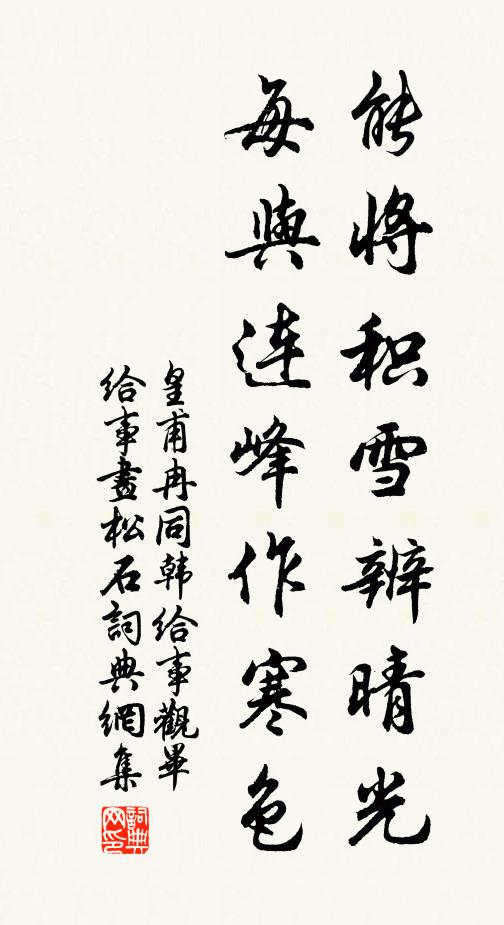 能将积雪辨晴光
每與连峰作寒色
皇甫冉同韩给事觀畢
给事畫松石詞典網集
詞典网印